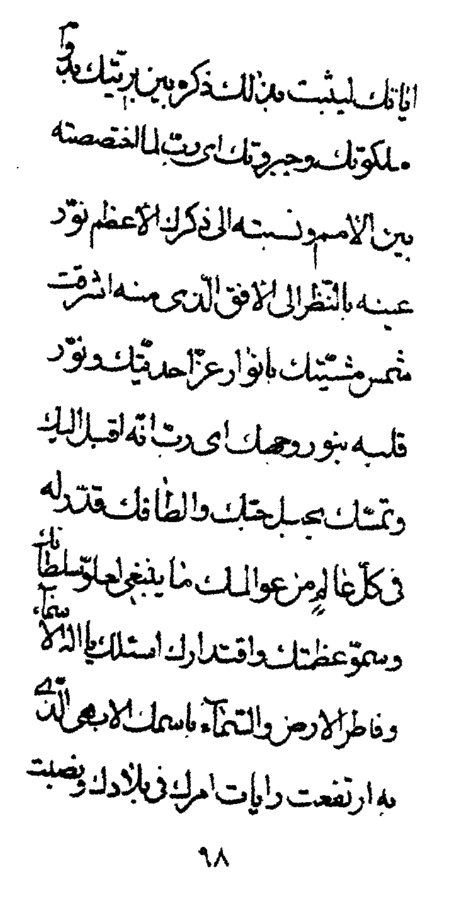 اياتك ليثبت بذلك ذكره بين بريّتك بدوام
ملكوتك و جبروتك اى ربّ لما اختصصته
بين الامم و نسبته الى ذكرك الاعظم نوّر
عينه بالنّظر الى الافق الّذى منه اشرقت
شمس مشيّتك بانوار عزّ احديّتك و نوّر
قلبه بنور وجهك اى ربّ انّه اقبل اليك
و تمسّك بحبل حبّك و الطافك قدّر له
فى كلّ عالم من عوالمك ما ينبغى لعلوّ سلطانك
و سموّ عظمتك و اقتدارك اسئلك يا اله الاسمآء
و فاطر الارض و السّمآء باسمك الابهى الّذى
به ارتفعت رايات امرك فى بلادك و نصبت
٩٨